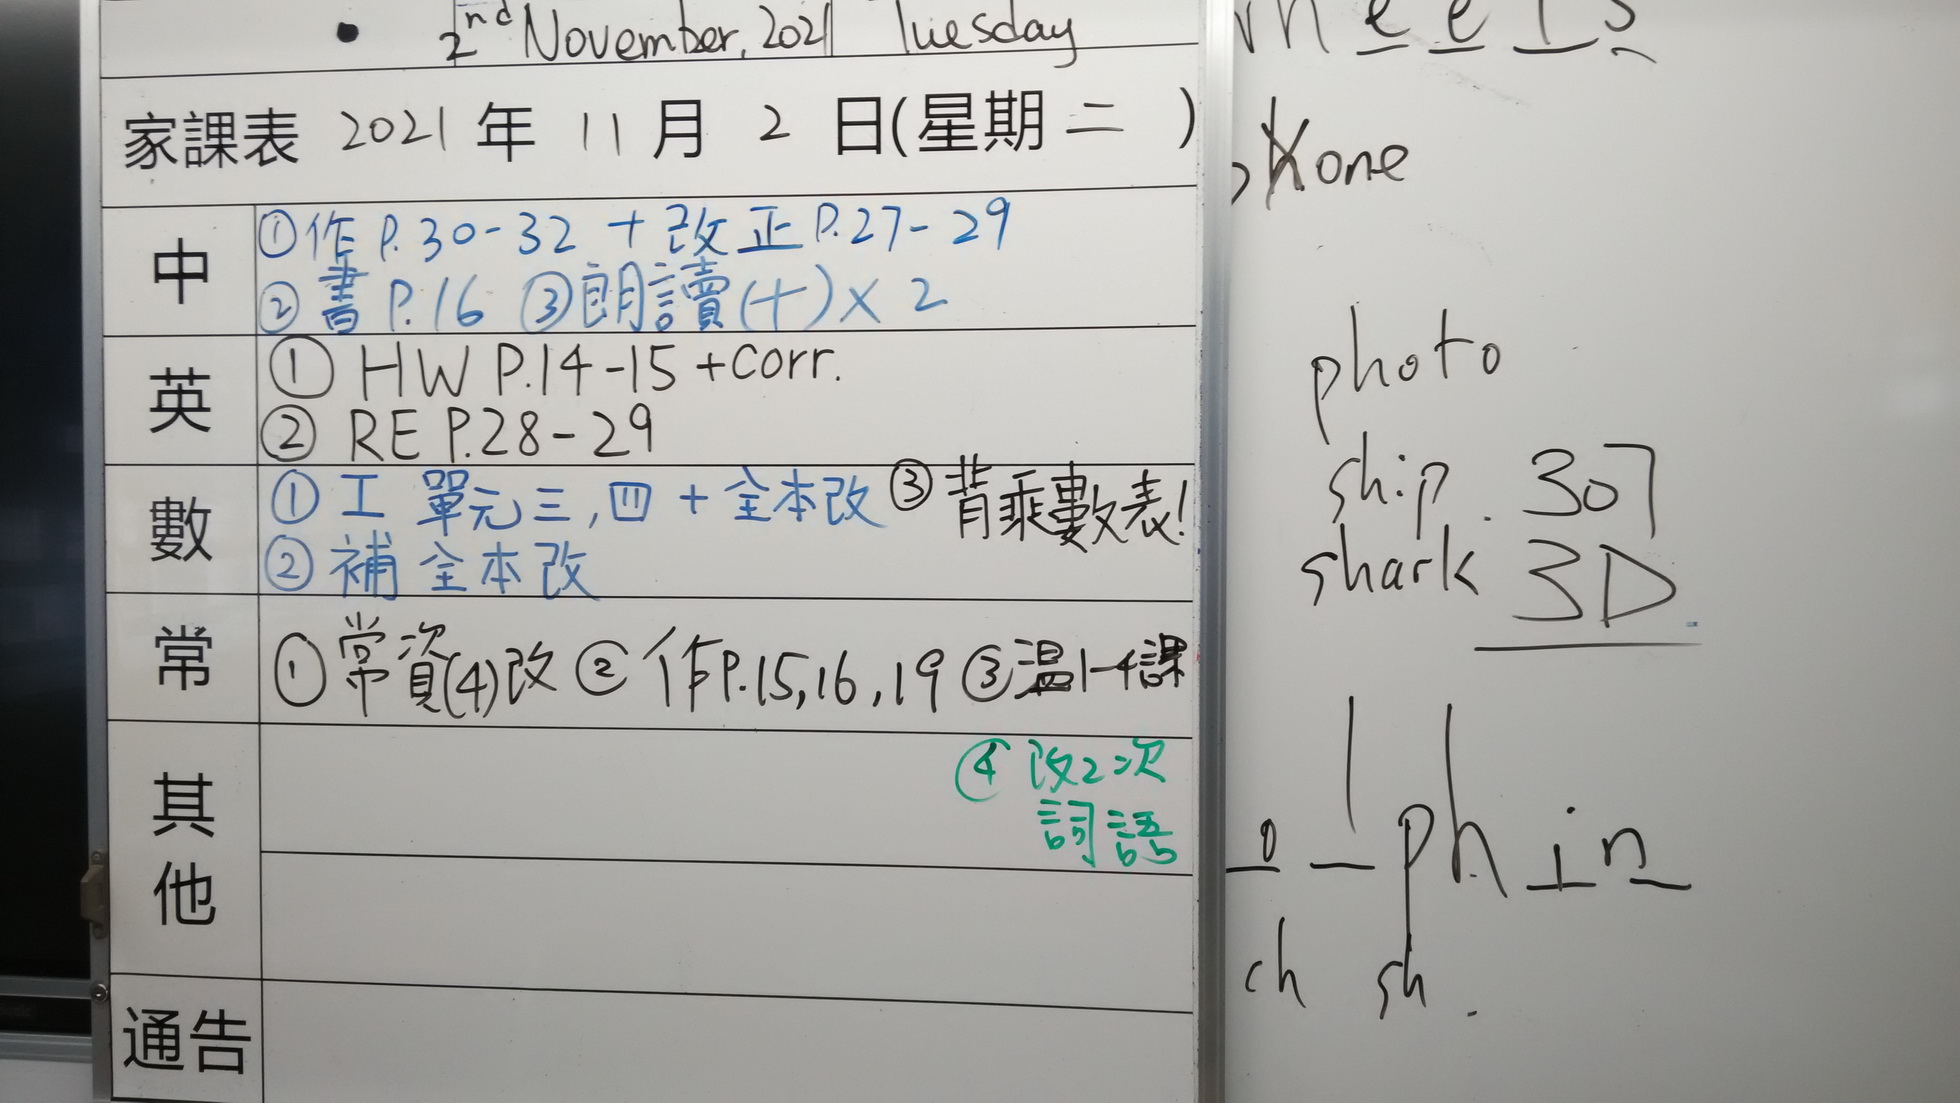 • 2nd November, 2021 Tuesday
家課表 2021 年 11 月 2 日(星期二 )
中
①作 P.30-32 + 改正 P.27-29
②書 P.16 ③朗讀(十)×2
英
① HW P.14-15 +corr.
② RE P.28-29
數
① 工 單元三,四 + 全本改 ③背乘數表!
② 補 全本改
常
①常資(4)改 ②作P.15,16,19 ③温1-4課
其他
④改2次
詞語
通告
one
photo
ship
shark
307
3D
o l ph i n
ch sh.